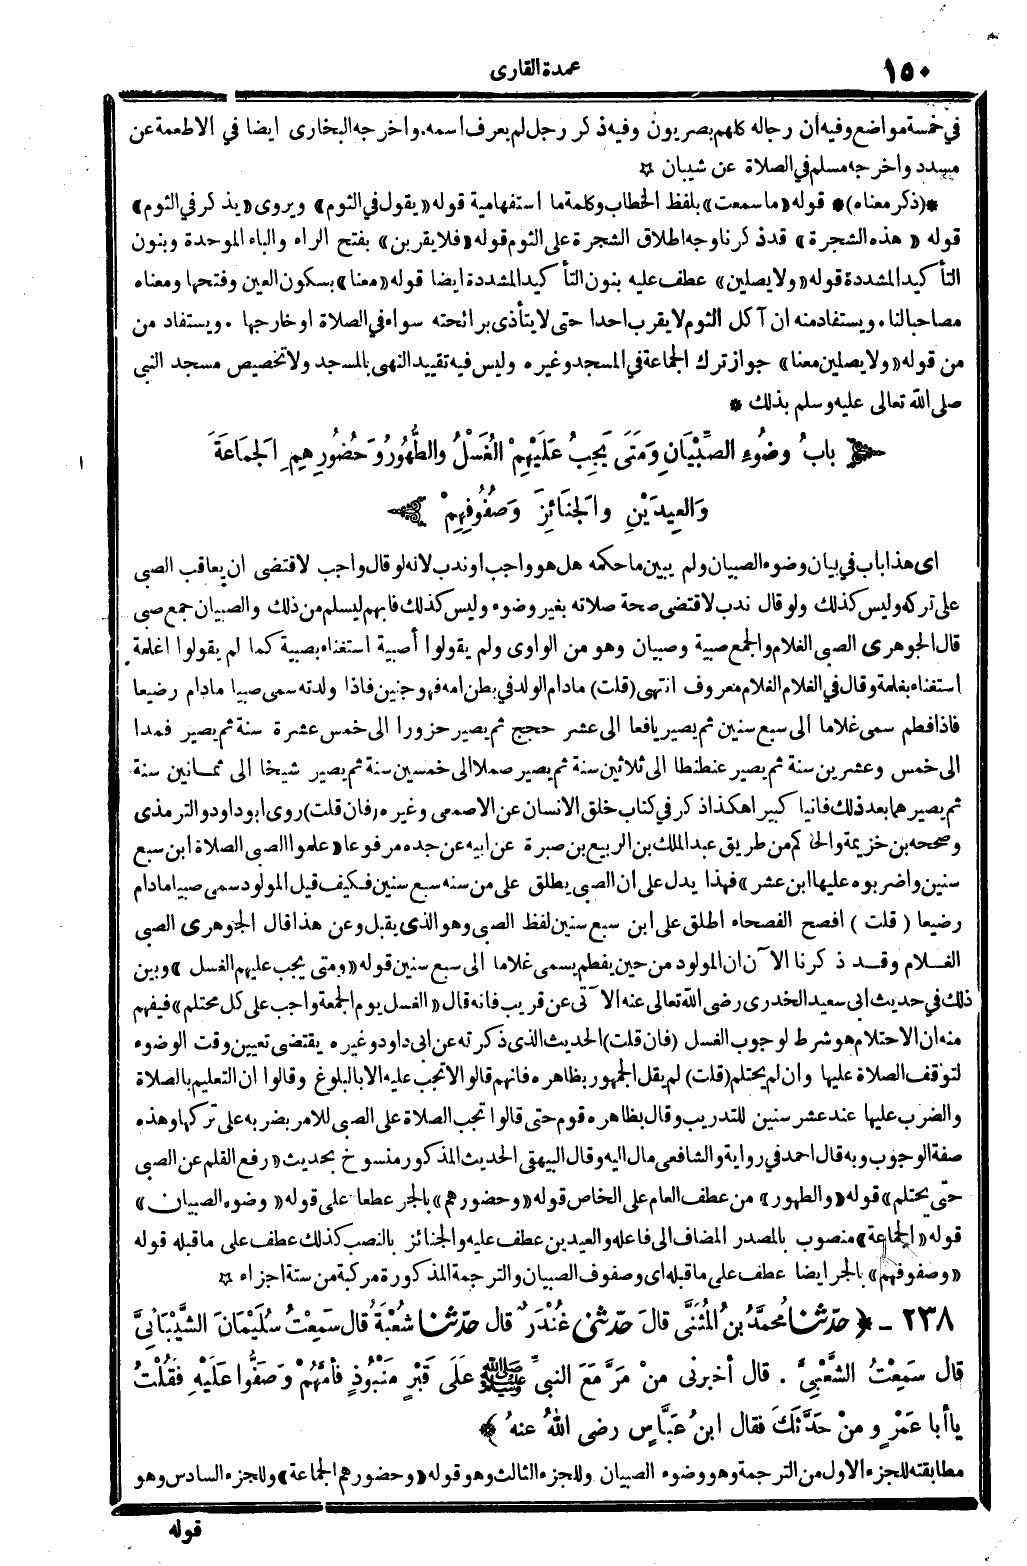 ١٥٠
عمدة القارى
في خمسة مواضع وفيه أن رجاله كلهم بصريون وفيه ذكر رجل لم يعرف اسمه. واخرجه البخارى ايضا في الاطعمة عن
مسدد واخرجه مسلم في الصلاة عن شيبان ☆
*(ذكر معناه)* قوله «ما سمعت» بلفظ الخطاب وكلمة ما استفهامية قوله «يقول في الثوم» ويروى «يذكر في الثوم»
قوله «هذه الشجرة» قد ذكرنا وجه اطلاق الشجرة على الثوم قوله «فلا يقربن» بفتح الراء والباء الموحدة وبنون
التأكيد المشددة قوله «ولا يصلين» عطف عليه بنون التأكيد المشددة ايضا قوله «معنا» بسكون العين وفتحها ومعناه
مصاحبا لنا. ويستفاد منه ان آكل الثوم لا يقرب احدا حتى لا يتأذى برائحته سواء في الصلاة او خارجها. ويستفاد من
من قوله «ولا يصلين معنا» جواز ترك الجماعة في المسجد وغيره وليس فيه تقييد النهى بالمسجد ولا تخصيص مسجد النبى
صلى الله تعالى عليه وسلم بذلك *
بابُ وضُوءِ الصِّبْيَانِ وَمَتَى يَجِبُ عَلَيْهِمْ الْغُسْلُ والطُّهُورُ وَحُضُورِهِمِ الْجَمَاعَةَ
وَالعِيدَيْنِ والْجَنَائِزَ وَصُفُوفِهِمْ
اى هذا باب في بيان وضوء الصبيان ولم يبين ما حكمه هل هو واجب او ندب لانه لو قال واجب لاقتضى ان يعاقب الصبى
على تركه وليس كذلك ولو قال ندب لاقتضى صحة صلاته بغير وضوء وليس كذلك فابهم ليسلم من ذلك والصبيان جمع صبى
قال الجوهرى الصبى الغلام والجمع صبية وصبيان وهو من الواوى ولم يقولوا أصبية استغناء بصبية كما لم يقولوا اغلمة
استغناء بغلمة وقال في الغلام الغلام معروف انتهى (قلت) ما دام الولد في بطن امه فهو جنين فاذا ولدته سمى صبيا ما دام رضيعا
فاذا فطم سمى غلاما الى سبع سنين ثم يصير يافعا الى عشر حجج ثم يصير حزورا الى خمس عشرة سنة ثم يصير قمدا
الى خمس وعشرين سنة ثم يصير عنطنطا الى ثلاثين سنة ثم يصير صملا الى خمسين سنة ثم يصير شيخا الى ثمانين سنة
ثم يصير هما بعد ذلك فانيا كبيرا هكذا ذكر في كتاب خلق الانسان عن الاصمعى وغيره (فان قلت) روى ابو داود والترمذى
وصححه بن خزيمة والحاكم من طريق عبد الملك بن الربيع بن صبرة عن ابيه عن جده مرفوعا «علموا الصبى الصلاة ابن سبع
سنين واضربوه عليها ابن عشر» فهذا يدل على ان الصبى يطلق على من سنه سبع سنين فكيف قيل المولود سمى صبيا ما دام
رضيعا (قلت) افصح الفصحاء اطلق على ابن سبع سنين لفظ الصبى وهو الذى يقبل وعن هذا قال الجوهرى الصبى
الغلام وقد ذكرنا الآن ان المولود من حين يفطم يسمى غلاما الى سبع سنين قوله «ومتى يجب عليهم الغسل» وبين
ذلك في حديث ابى سعيد الخدرى رضى الله تعالى عنه الآتى عن قريب فانه قال «الغسل يوم الجمعة واجب على كل محتلم» فيفهم
منه ان الاحتلام هو شرط لوجوب الغسل (فان قلت) الحديث الذى ذكرته عن ابى داود وغيره يقتضى تعيين وقت الوضوء
لتوقف الصلاة عليها وان لم يحتلم (قلت) لم يقل الجمهور بظاهره فانهم قالوا لا تجب عليه الا بالبلوغ وقالوا ان التعليم بالصلاة
والضرب عليها عند عشر سنين للتدريب وقال بظاهره قوم حتى قالوا تجب الصلاة على الصبى للامر بضربه على تركها وهذه
صفة الوجوب وبه قال احمد في رواية والشافعى مال اليه وقال البيهقى الحديث المذكور منسوخ بحديث «رفع القلم عن الصبى
حتى يحتلم» قوله «والطهور» من عطف العام على الخاص قوله «وحضورهم» بالجر عطفا على قوله «وضوء الصبيان»
قوله «الجماعة» منصوب بالمصدر المضاف الى فاعله والعيدين عطف عليه والجنائز بالنصب كذلك عطف على ما قبله قوله
«وصفوفهم» بالجر ايضا عطف على ما قبله اى وصفوف الصبيان والترجمة المذكورة مركبة من ستة اجزاء ☆
٢٣٨ - ﴿ حدّثنا مُحمَّدُ بنُ الْمُثَنَّى قالَ حدّثنى غُنْدَرٌ قال حدّثنا شُعْبَةُ قال سَمِعْتُ سُلَيْمَانَ الشَّيْبَانِيَّ
قال سَمِعْتُ الشَّعْبِيَّ . قال أخبرنى منْ مَرَّ مَعَ النبىِّ ﷺ عَلَى قَبْرٍ مَنْبُوذٍ فأمَّهُمْ وَصَفُّوا عَلَيْهِ فَقُلْتُ
يا أبا عَمْرٍو منْ حَدَّثَكَ فقال ابنُ عَبَّاسٍ رضى اللهُ عنهُ ﴾
مطابقته للجزء الاول من الترجمة وهو وضوء الصبيان وللجزء الثالث وهو قوله «وحضورهم الجماعة» وللجزء السادس وهو
قوله